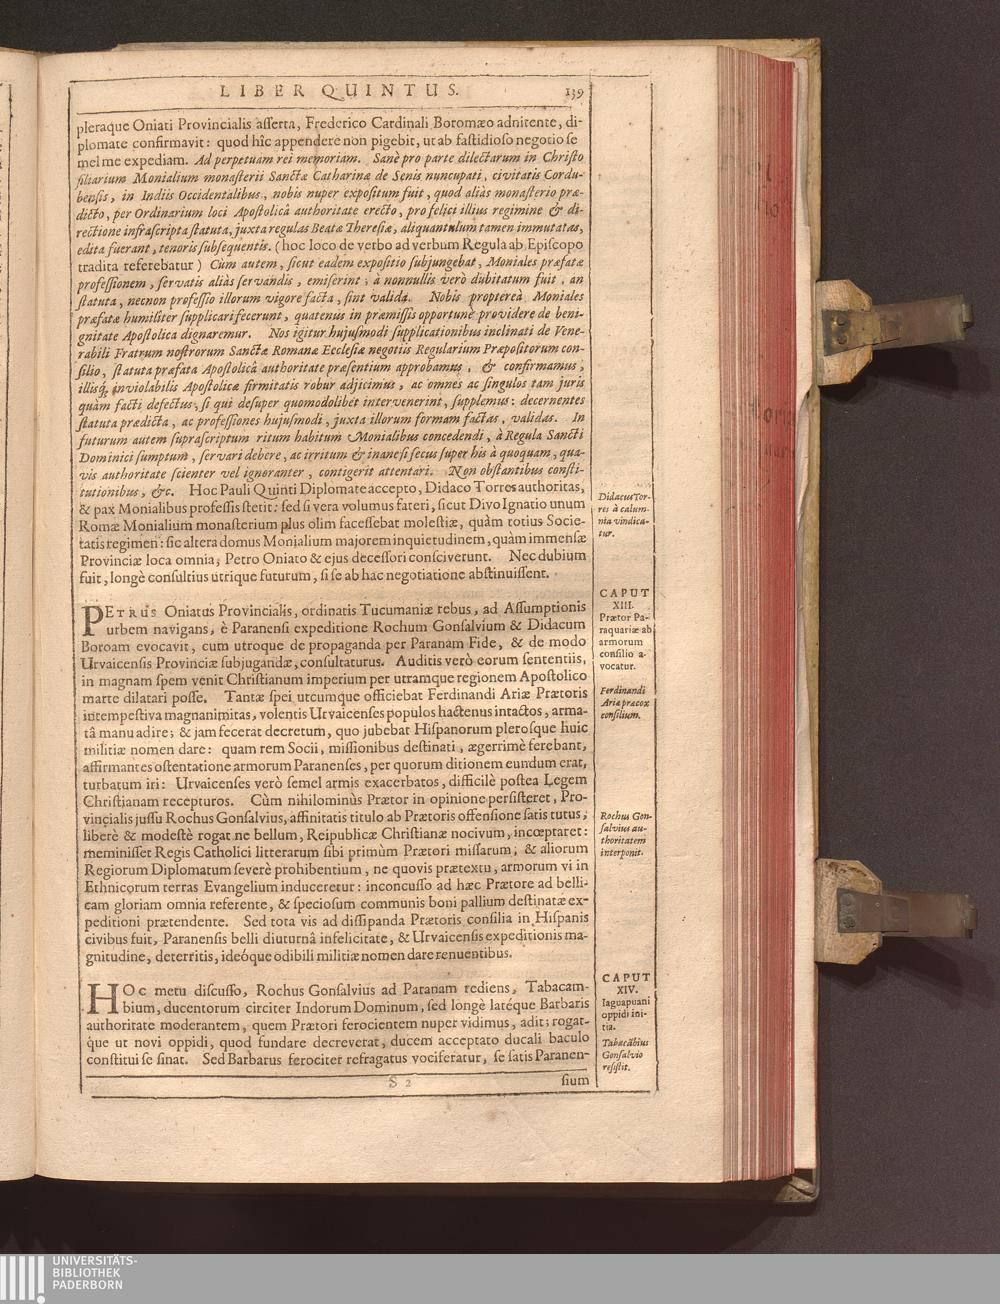 LIBER QUINTUS. 139
pleraque Oniati Provincialis asserta, Frederico Cardinali Boromæo adnitente, di-
plomate confirmavit: quod hîc appendere non pigebit, ut ab fastidioso negotio se
mel me expediam. Ad perpetuam rei memoriam. Sanè pro parte dilectarum in Christo
filiarium Monialium monasterii Sanctæ Catharinæ de Senis nuncupati, civitatis Cordu-
bensis, in Indiis Occidentalibus, nobis nuper expositum fuit, quod aliàs monasterio præ-
dicto, per Ordinarium loci Apostolicâ authoritate erecto, pro felici illius regimine & di-
rectione infrascripta statuta, juxta regulas Beatæ Theresiæ, aliquantulum tamen immutatas,
edita fuerant, tenoris subsequentis. (hoc loco de verbo ad verbum Regula ab Episcopo
tradita referebatur) Cùm autem, sicut eadem expositio subjungebat, Moniales præfatæ
professionem, servatis aliàs servandis, emiserint, à nonnullis verò dubitatum fuit, an
statuta, necnon professio illorum vigore facta, sint valida. Nobis proptereà Moniales
præfatæ humiliter supplicari fecerunt, quatenùs in præmissis opportunè providere de beni-
gnitate Apostolica dignaremur. Nos igitur hujusmodi supplicationibus inclinati de Vene-
rabili Fratrum nostrorum Sanctæ Romanæ Ecclesiæ negotiis Regularium Præpositorum con-
silio, statuta præfata Apostolicâ authoritate præsentium approbamus, & confirmamus,
illisq; inviolabilis Apostolicæ firmitatis robur adjicimus, ac omnes ac singulos tam juris
quàm facti defectus, si qui desuper quomodolibet intervenerint, supplemus: decernentes
statuta prædicta, ac professiones hujusmodi, juxta illorum formam factas, validas. In
futurum autem suprascriptum ritum habitum Monialibus concedendi, à Regula Sancti
Dominici sumptum, servari debere, ac irritum & inane si secus super his à quoquam, qua-
vis authoritate scienter vel ignoranter, contigerit attentari. Non obstantibus consti-
tutionibus, &c. Hoc Pauli Quinti Diplomate accepto, Didaco Torres authoritas,
& pax Monialibus professis stetit: sed si vera volumus fateri, sicut Divo Ignatio unum
Romæ Monialium monasterium plus olim facessebat molestiæ, quàm totius Socie-
tatis regimen: sic altera domus Monialium majorem inquietudinem, quàm immensæ
Provinciæ loca omnia, Petro Oniato & ejus decessori consciverunt. Nec dubium
fuit, longè consultius utrique futurum, si se ab hac negotiatione abstinuissent.
Didacus Tor-
res à calum-
nia vindica-
tur.
PETRUS Oniatus Provincialis, ordinatis Tucumaniæ rebus, ad Assumptionis
urbem navigans, è Paranensi expeditione Rochum Gonsalvium & Didacum
Boroam evocavit, cum utroque de propaganda per Paranam Fide, & de modo
Urvaicensis Provinciæ subjugandæ, consultaturus. Auditis verò eorum sententiis,
in magnam spem venit Christianum imperium per utramque regionem Apostolico
marte dilatari posse. Tantæ spei utcumque officiebat Ferdinandi Ariæ Prætoris
intempestiva magnanimitas, volentis Urvaicenses populos hactenus intactos, arma-
tâ manu adire; & jam fecerat decretum, quo jubebat Hispanorum plerosque huic
militiæ nomen dare: quam rem Socii, missionibus destinati, ægerrimè ferebant,
affirmantes ostentatione armorum Paranenses, per quorum ditionem eundum erat,
turbatum iri: Urvaicenses verò semel armis exacerbatos, difficilè postea Legem
Christianam recepturos. Cùm nihilominùs Prætor in opinione persisteret, Pro-
vincialis jussu Rochus Gonsalvius, affinitatis titulo ab Prætoris offensione satis tutus,
liberè & modestè rogat ne bellum, Reipublicæ Christianæ nocivum, incœptaret:
meminisset Regis Catholici litterarum sibi primùm Prætori missarum, & aliorum
Regiorum Diplomatum severè prohibentium, ne quovis prætextu, armorum vi in
Ethnicorum terras Evangelium induceretur: inconcusso ad hæc Prætore ad belli-
cam gloriam omnia referente, & speciosum communis boni pallium destinatæ ex-
peditioni prætendente. Sed tota vis ad dissipanda Prætoris consilia in Hispanis
civibus fuit, Paranensis belli diuturnâ infelicitate, & Urvaicensis expeditionis ma-
gnitudine, deterritis, ideóque odibili militiæ nomen dare renuentibus.
CAPUT
XIII.
Prætor Pa-
raquariæ ab
armorum
consilio a-
vocatur.
Ferdinandi
Ariæ præcox
consilium.
Rochus Gon-
salvius au-
thoritatem
interponit.
HOC metu discusso, Rochus Gonsalvius ad Paranam rediens, Tabacam-
bium, ducentorum circiter Indorum Dominum, sed longè latéque Barbaris
authoritate moderantem, quem Prætori ferocientem nuper vidimus, adit; rogat-
que ut novi oppidi, quod fundare decreverat, ducem acceptato ducali baculo
constitui se sinat. Sed Barbarus ferociter refragatus vociferatur, se satis Paranen-
CAPUT
XIV.
Iaguapuani
oppidi ini-
tia.
Tabacãbius
Gonsalvio
resistit.
S 2 sium
UNIVERSITÄTS-
BIBLIOTHEK
PADERBORN